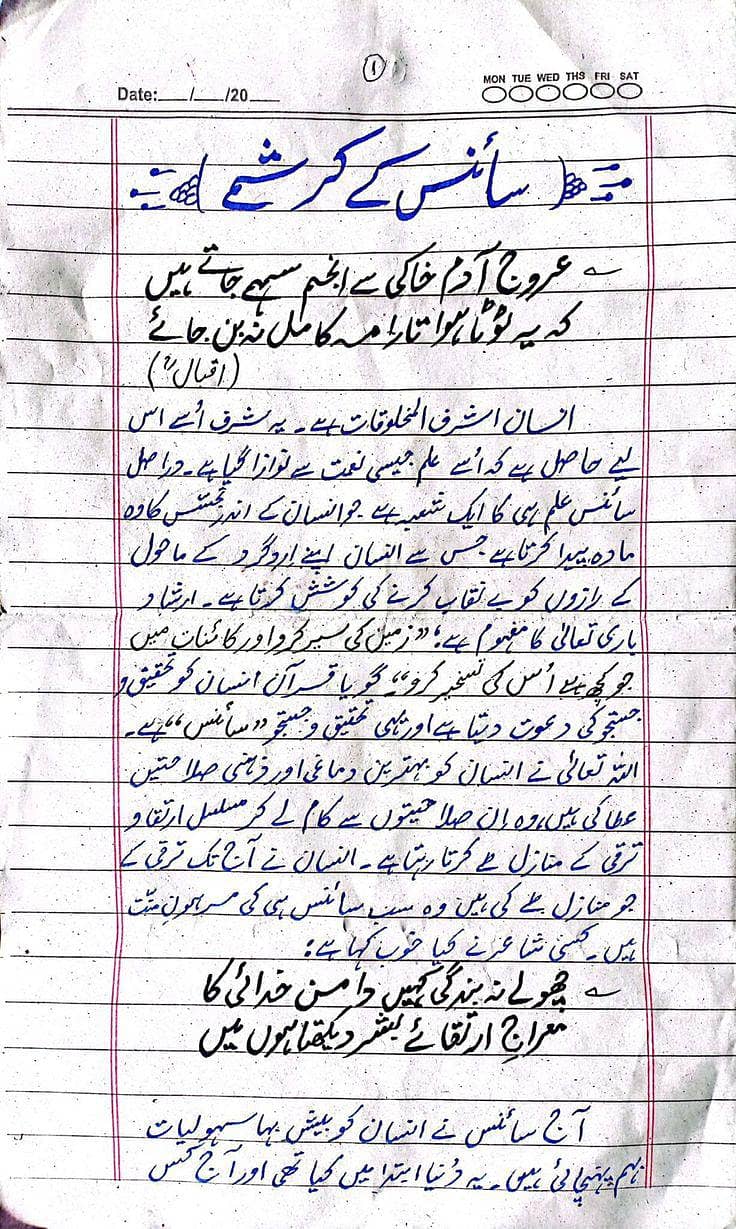 ۱
Date:___/___/20___
MON TUE WED THS FRI SAT
سائنس کے کرشمے
عروجِ آدم خاکی سے انجم سہمے جاتے ہیں
کہ یہ ٹوٹا ہوا تارا مہ کامل نہ بن جائے
(اقبالؒ)
انسان اشرف المخلوقات ہے۔ یہ شرف اُسے اس
لیے حاصل ہے کہ اُسے علم جیسی نعمت سے نوازا گیا ہے۔ دراصل
سائنس علم ہی کا ایک شعبہ ہے جو انسان کے اندر تجسّس کا وہ
مادہ پیدا کرتا ہے جس سے انسان اپنے اردگرد کے ماحول
کے رازوں کو بے نقاب کرنے کی کوشش کرتا ہے۔ ارشاد
باری تعالیٰ کا مفہوم ہے: "زمین کی سیر کرو اور کائنات میں
جو کچھ ہے اُس کی تسخیر کرو"۔ گویا قرآن انسان کو تحقیق و
جستجو کی دعوت دیتا ہے اور یہی تحقیق و جستجو "سائنس" ہے۔
اللہ تعالیٰ نے انسان کو بہترین دماغی اور ذہنی صلاحتیں
عطا کی ہیں، وہ اِن صلاحیتوں سے کام لے کر مسلسل ارتقا و
ترقی کے منازل طے کرتا رہتا ہے۔ انسان نے آج تک ترقی کے
جو منازل طے کی ہیں وہ سب سائنس ہی کی مرہونِ منّت
ہیں۔ کسی شاعر نے کیا خوب کہا ہے:
چھولے نہ بندگی کہیں دامن خدائی کا
معراجِ ارتقائے بشر دیکھتا ہوں میں
آج سائنس نے انسان کو بیش بہا سہولیات
بہم پہنچائی ہیں۔ یہ دُنیا ابتدا میں کیا تھی اور آج کس